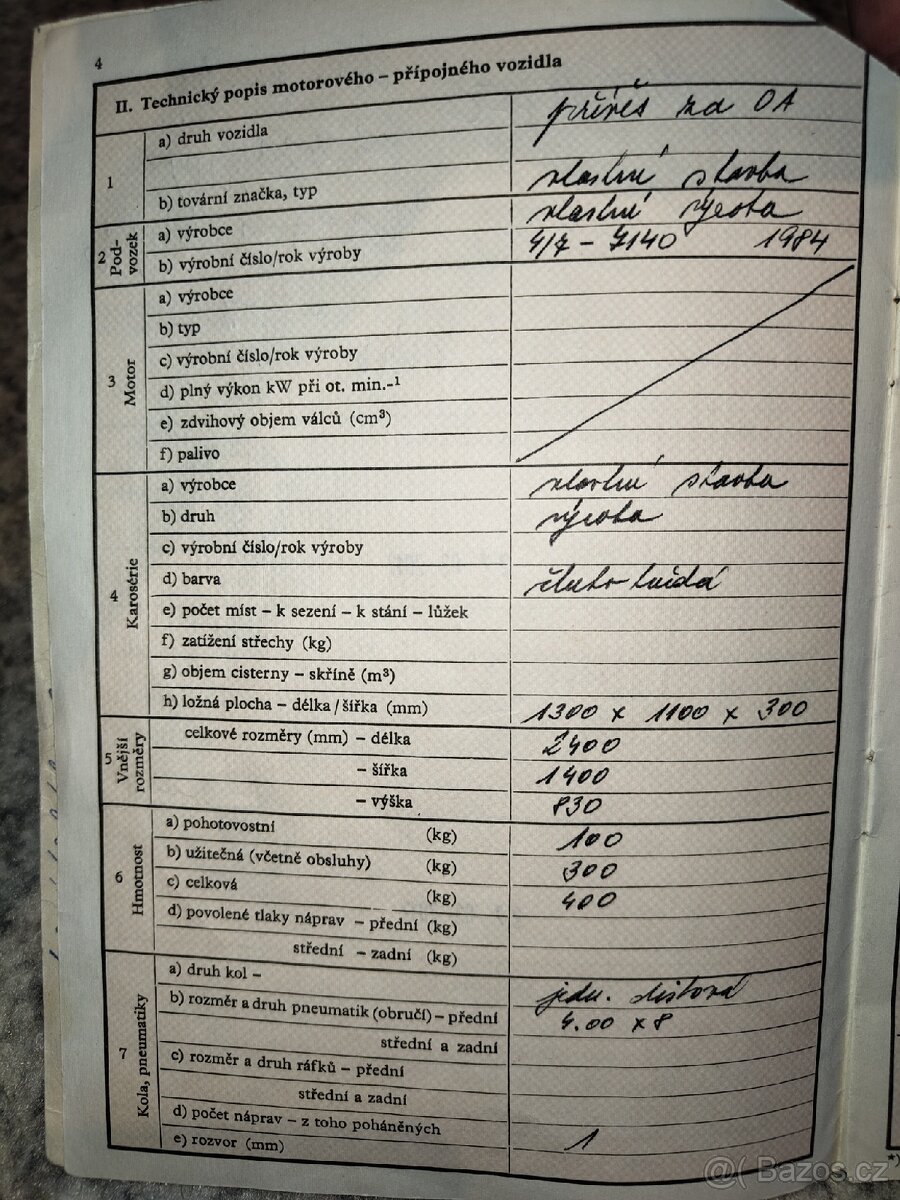 4
II. Technický popis motorového – přípojného vozidla
1
a) druh vozidla
přívěs za OA
b) tovární značka, typ
vlastní stavba
2 Pod-
vozek
a) výrobce
vlastní výroba
b) výrobní číslo/rok výroby
4/7 – 7140 1984
3
Motor
a) výrobce
b) typ
c) výrobní číslo/rok výroby
d) plný výkon kW při ot. min.-¹
e) zdvihový objem válců (cm³)
f) palivo
4
Karosérie
a) výrobce
vlastní stavba
b) druh
výroba
c) výrobní číslo/rok výroby
d) barva
e) počet míst – k sezení – k stání – lůžek
f) zatížení střechy (kg)
g) objem cisterny – skříně (m³)
h) ložná plocha – délka / šířka (mm)
1300 x 1100 x 300
5
Vnější
rozměry
celkové rozměry (mm) – délka
2400
– šířka
1400
– výška
830
6
Hmotnost
a) pohotovostní (kg)
100
b) užitečná (včetně obsluhy) (kg)
300
c) celková (kg)
400
d) povolené tlaky náprav – přední (kg)
střední – zadní (kg)
7
Kola, pneumatiky
a) druh kol –
jedn. disková
b) rozměr a druh pneumatik (obručí) – přední
4.00 x 8
střední a zadní
c) rozměr a druh ráfků – přední
střední a zadní
d) počet náprav – z toho poháněných
1
e) rozvor (mm)
*)
@( Bazos.cz